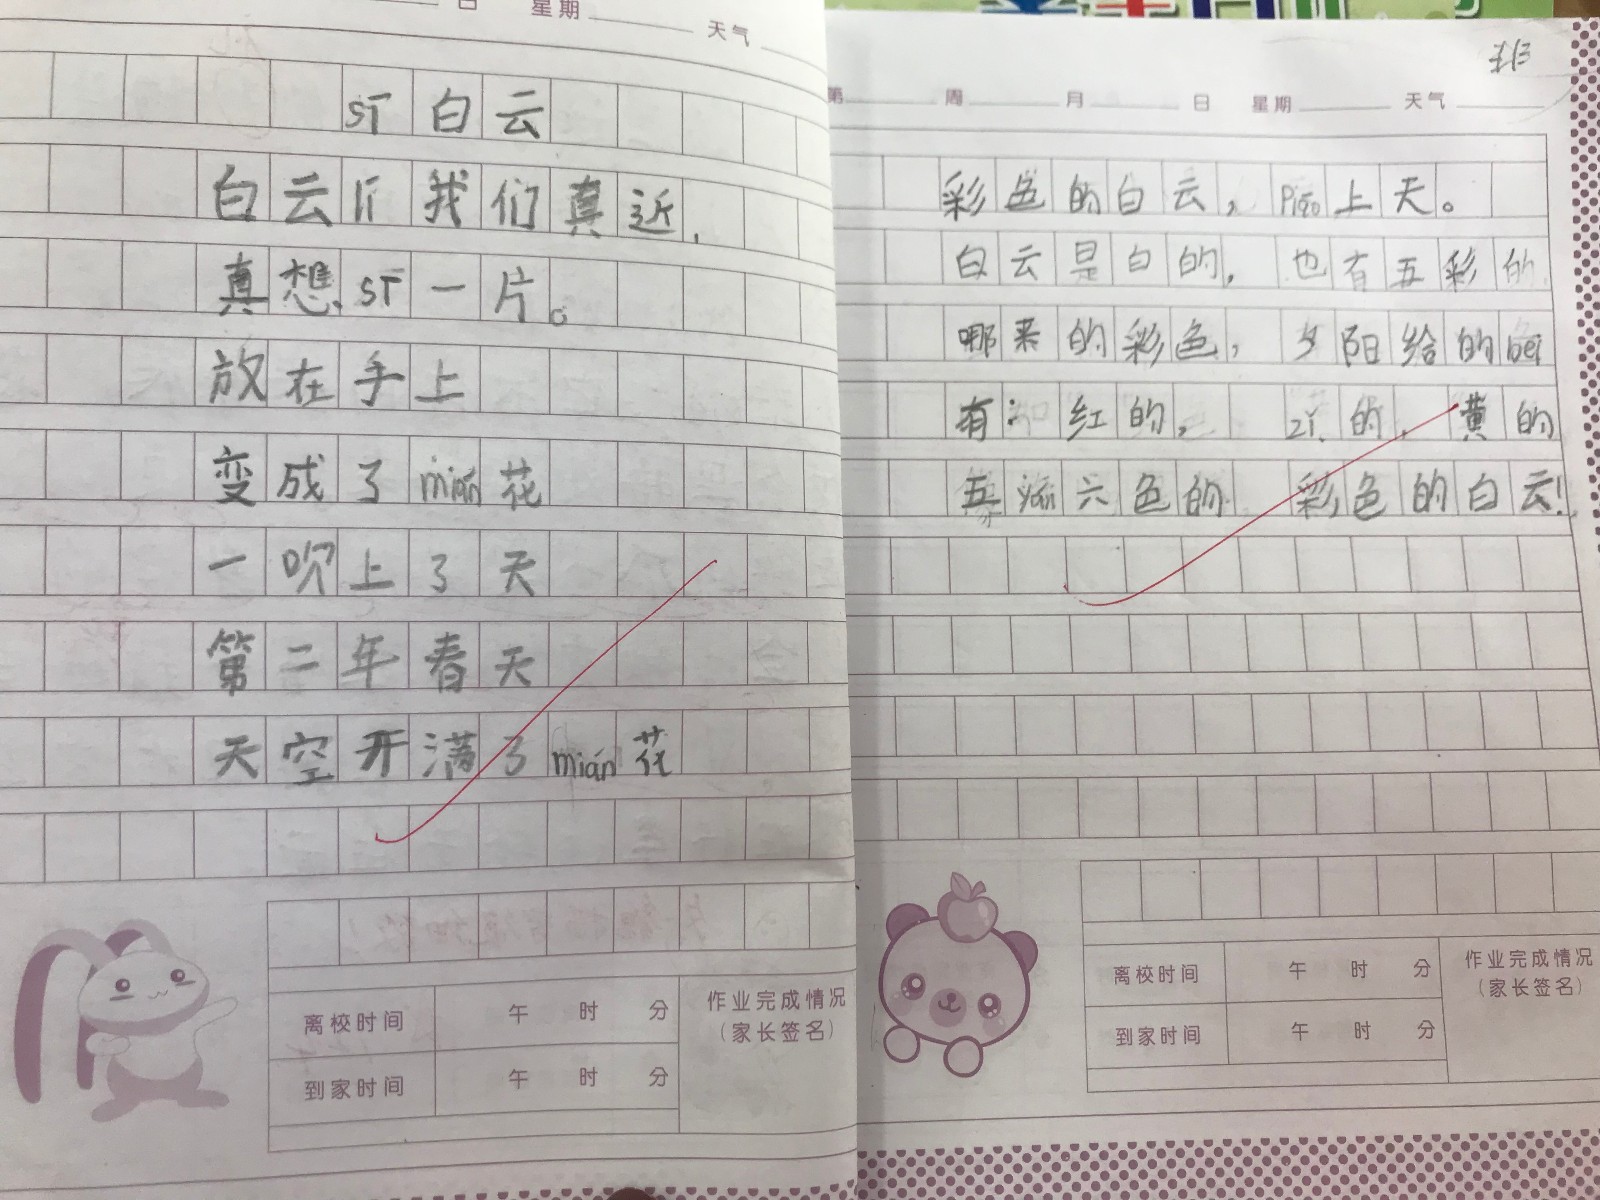 日 星期 天气
sī 白云
白云lí我们真近，
真想sī一片。
放在手上
变成了mián花
一吹上了天
第二年春天
天空开满了mián花
离校时间 午 时 分
到家时间 午 时 分
作业完成情况
（家长签名）
第 周 月 日 星期 天气
彩色的白云，piāo上天。
白云是白的，也有五彩的
哪来的彩色，夕阳给的
有：红的，zǐ的，黄的
五颜六色的 彩色的白云！
离校时间 午 时 分
到家时间 午 时 分
作业完成情况
（家长签名）